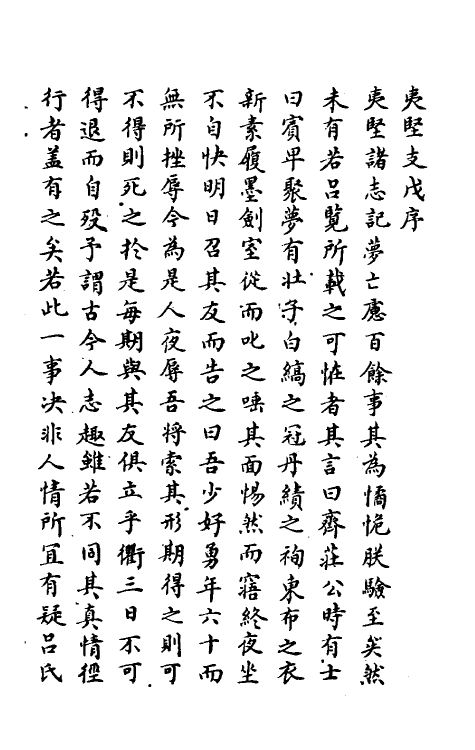 夷堅支戊序
夷堅諸志記夢亡慮百餘事其為憰恑朕驗至矣然
未有若呂覧所載之可恠者其言曰齊莊公時有士
曰賓卑聚夢有壮子白縞之冠丹績之袧東布之衣
新素履墨劍室從而叱之唾其面惕然而寤終夜坐
不自快明日召其友而告之曰吾少好勇年六十而
無所挫辱今為是人夜辱吾將索其形期得之則可
不得則死之於是每期與其友俱立乎衢三日不可
得退而自殁予謂古今人志趣雖若不同其真情徑
行者盖有之矣若此一事决非人情所冝有疑呂氏